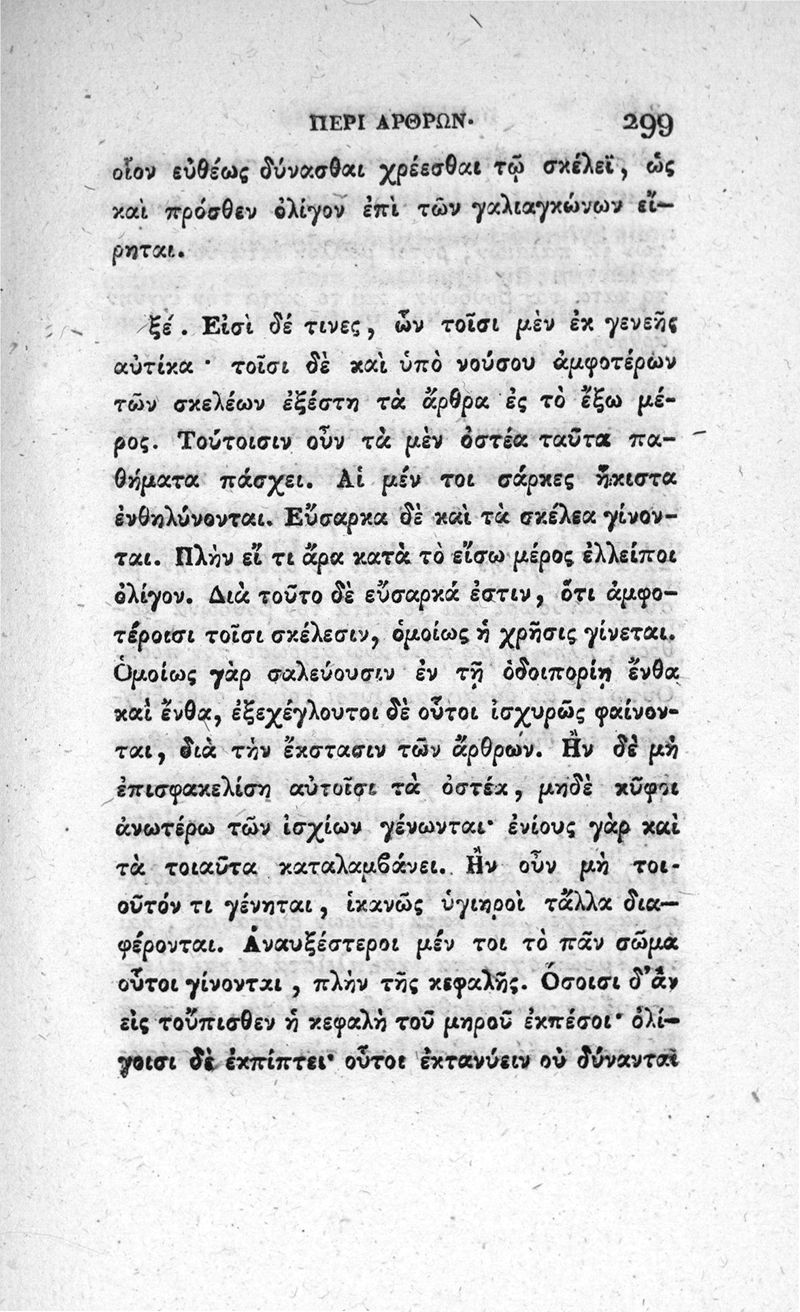 ΠΕΡΙ ΑΡΘΡΩΝ· 299
οἷον εὐθέως δύνασθαι χρέεσθαι τῷ σκέλεϊ, ὡς
καὶ πρόσθεν ὀλίγον ἐπὶ τῶν γαλιαγκώνων εἴ-
ρηται.
ξέ. Εἰσὶ δέ τινες, ὧν τοῖσι μὲν ἐκ γενεῆς
αὐτίκα · τοῖσι δὲ καὶ ὑπὸ νούσου ἀμφοτέρων
τῶν σκελέων ἐξέστη τὰ ἄρθρα ἐς τὸ ἔξω μέ-
ρος. Τούτοισιν οὖν τὰ μὲν ὀστέα ταῦτα πα-
θήματα πάσχει. Αἱ μέν τοι σάρκες ἥκιστα
ἐνθηλύνονται. Εὔσαρκα δὲ καὶ τὰ σκέλεα γίνον-
ται. Πλὴν εἴ τι ἄρα κατὰ τὸ εἴσω μέρος ἐλλείποι
ὀλίγον. Διὰ τοῦτο δὲ εὔσαρκά ἐστιν, ὅτι ἀμφο-
τέροισι τοῖσι σκέλεσιν, ὁμοίως ἡ χρῆσις γίνεται.
Ὁμοίως γὰρ σαλεύουσιν ἐν τῇ ὁδοιπορίῃ ἔνθα
καὶ ἔνθα, ἐξεχέγλουτοι δὲ οὗτοι ἰσχυρῶς φαίνον-
ται, διὰ τὴν ἔκστασιν τῶν ἄρθρων. Ἢν δὲ μὴ
ἐπισφακελίσῃ αὐτοῖσι τὰ ὀστέα, μηδὲ κῦφοι
ἀνωτέρω τῶν ἰσχίων γένωνται· ἐνίους γὰρ καὶ
τὰ τοιαῦτα καταλαμβάνει. Ἢν οὖν μὴ τοι-
οῦτόν τι γένηται, ἱκανῶς ὑγιηροὶ τἄλλα δια-
φέρονται. Ἀναυξέστεροι μέν τοι τὸ πᾶν σῶμα
οὗτοι γίνονται, πλὴν τῆς κεφαλῆς. Ὅσοισι δ᾽ἂν
εἰς τοὔπισθεν ἡ κεφαλὴ τοῦ μηροῦ ἐκπέσοι· ὀλί-
γοισι δὲ ἐκπίπτει· οὗτοι ἐκτανύειν οὐ δύνανται